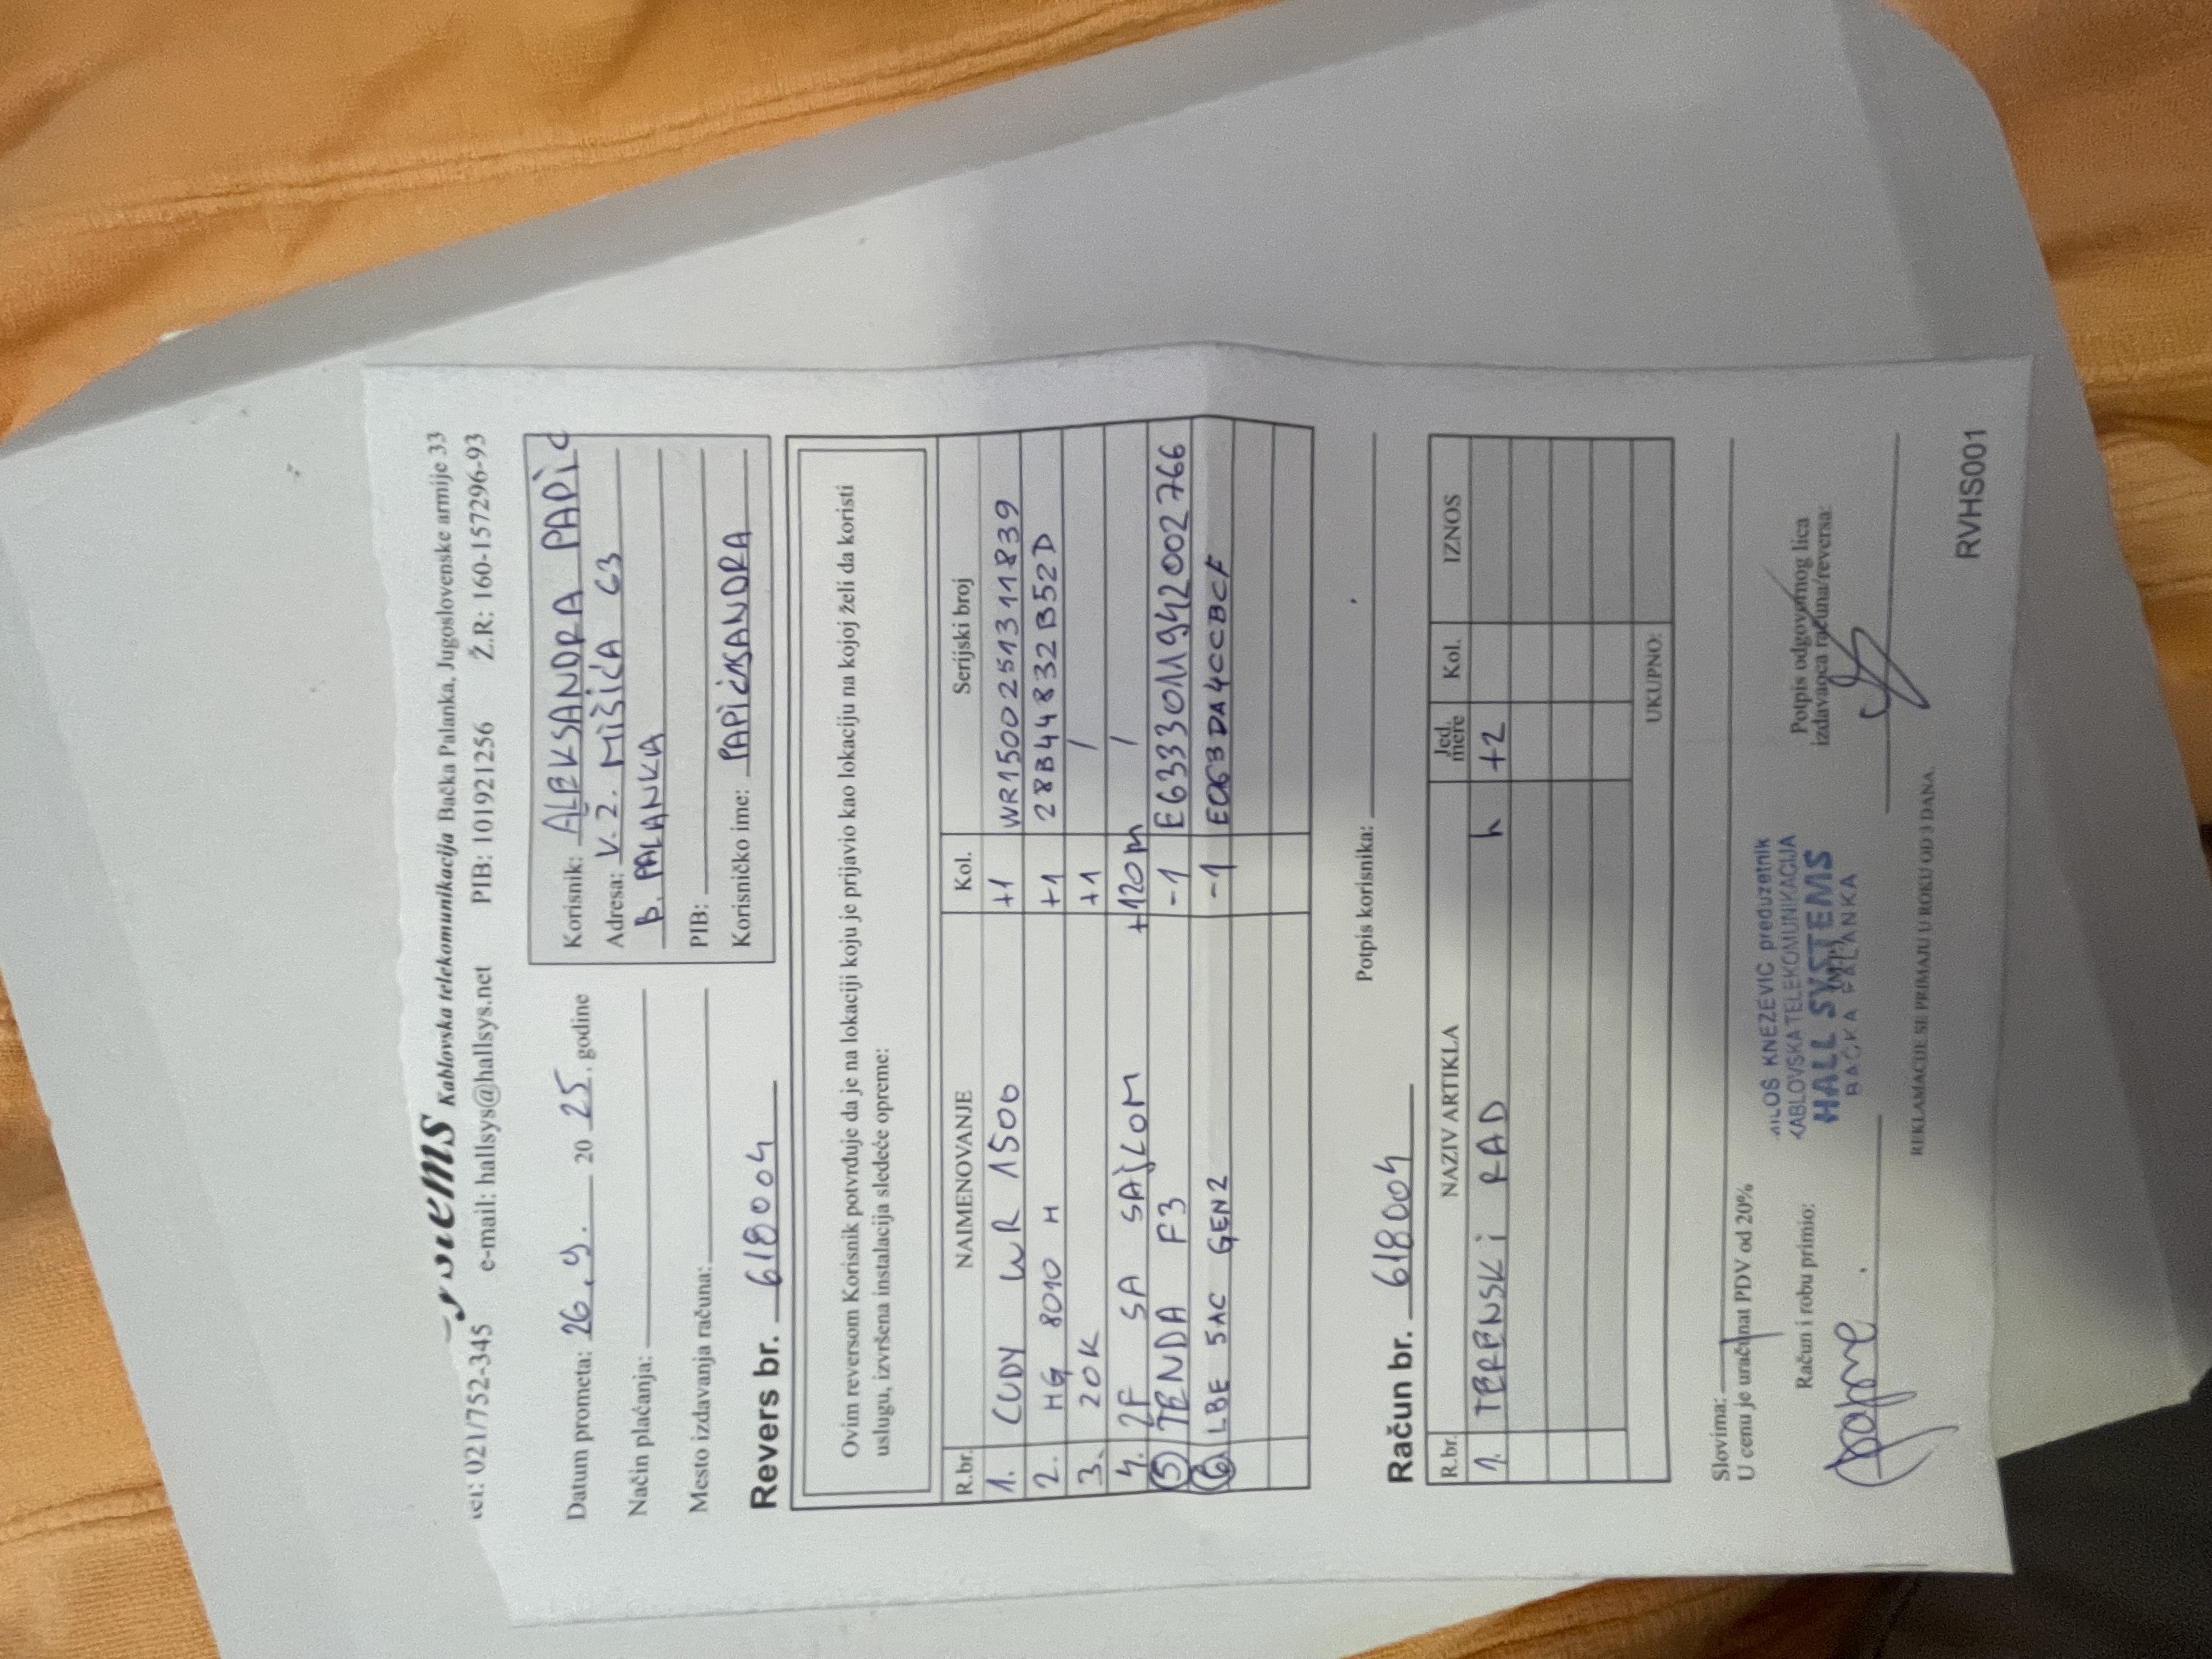 Systems Kablovska telekomunikacija Bačka Palanka, Jugoslovenske armije 33
tel: 021/752-345 e-mail: hallsys@hallsys.net PIB: 101921256 Ž.R: 160-157296-93
Datum prometa: 26.9. 20 25. godine
Način plaćanja:
Mesto izdavanja računa:
Korisnik: ALEKSANDRA PAPIĆ
Adresa: V. Ž. MIŠIĆA 63
B. PALANKA
PIB:
Korisničko ime:
Revers br. 618004
Ovim reversom Korisnik potvrđuje da je na lokaciji koju je prijavio kao lokaciju na kojoj želi da koristi
uslugu, izvršena instalacija sledeće opreme:
R.br. NAIMENOVANJE Kol. Serijski broj
1. CUDY WR 1500 +1 WR1500251311839
2. HG 8010 H +1 28B44832B52D
3. 20K +1 /
4. 2F SA SAJLOM +120m /
5 TENDA F3 -1 E6333011942002766
6 LBE 5AC GEN2 -1 E063DA4CCBCF
Potpis korisnika:
Račun br. 618004
R.br. NAZIV ARTIKLA Jed. mere Kol. IZNOS
1. TERENSKI RAD h +2
UKUPNO:
Slovima:
U cenu je uračunat PDV od 20%
Račun i robu primio:
MILOŠ KNEŽEVIĆ preduzetnik
KABLOVSKA TELEKOMUNIKACIJA
HALL SYSTEMS
(M.P.)
BAČKA PALANKA
Potpis odgovornog lica
izdavaoca računa/reversa:
REKLAMACIJE SE PRIMAJU U ROKU OD 3 DANA.
RVHS001